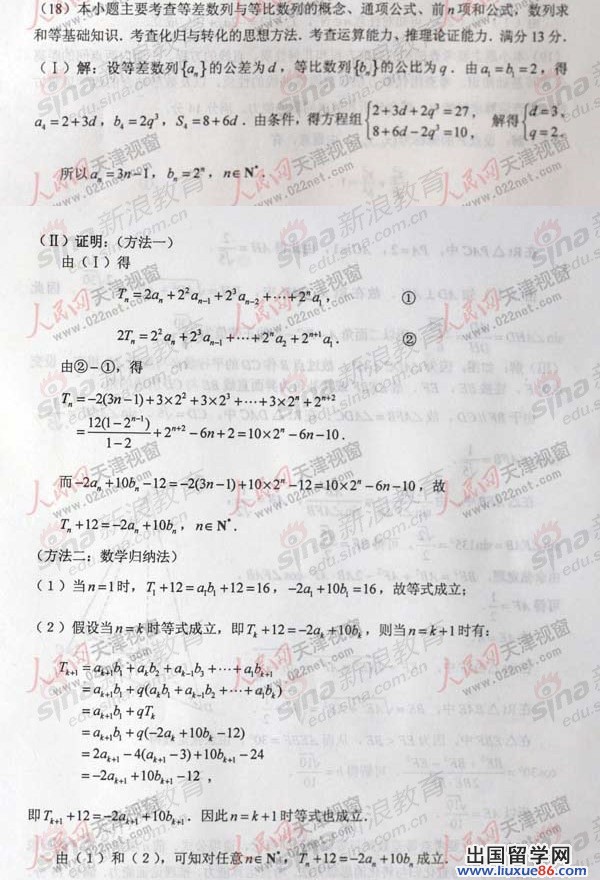 （18）本小题主要考查等差数列与等比数列的概念、通项公式、前n项和公式，数列求
和等基础知识．考查化归与转化的思想方法．考查运算能力、推理论证能力．满分13分．
（Ⅰ）解：设等差数列{aₙ}的公差为d，等比数列{bₙ}的公比为q．由a₁=b₁=2，得
a₄=2+3d，b₄=2q³，S₄=8+6d．由条件，得方程组{2+3d+2q³=27，8+6d−2q³=10，解得{d=3，q=2。
所以aₙ=3n−1，bₙ=2ⁿ，n∈N*．
（Ⅱ）证明：（方法一）
由（Ⅰ）得
Tₙ=2aₙ+2²aₙ₋₁+2³aₙ₋₂+⋯+2ⁿa₁， ①
2Tₙ=2²aₙ+2³aₙ₋₁+⋯+2ⁿa₂+2ⁿ⁺¹a₁． ②
由②−①，得
Tₙ=−2(3n−1)+3×2²+3×2³+⋯+3×2ⁿ+2ⁿ⁺²
=12(1−2ⁿ⁻¹)/(1−2)+2ⁿ⁺²−6n+2=10×2ⁿ−6n−10．
而−2aₙ+10bₙ−12=−2(3n−1)+10×2ⁿ−12=10×2ⁿ−6n−10，故
Tₙ+12=−2aₙ+10bₙ，n∈N*．
（方法二：数学归纳法）
（1）当n=1时，T₁+12=a₁b₁+12=16，−2a₁+10b₁=16，故等式成立；
（2）假设当n=k时等式成立，即Tₖ+12=−2aₖ+10bₖ，则当n=k+1时有：
Tₖ₊₁=aₖ₊₁b₁+aₖb₂+aₖ₋₁b₃+⋯+a₁bₖ₊₁
=aₖ₊₁b₁+q(aₖb₁+aₖ₋₁b₂+⋯+a₁bₖ)
=aₖ₊₁b₁+qTₖ
=aₖ₊₁b₁+q(−2aₖ+10bₖ−12)
=2aₖ₊₁−4(aₖ₊₁−3)+10bₖ₊₁−24
=−2aₖ₊₁+10bₖ₊₁−12，
即Tₖ₊₁+12=−2aₖ₊₁+10bₖ₊₁．因此n=k+1时等式也成立．
由（1）和（2），可知对任意n∈N*，Tₙ+12=−2aₙ+10bₙ成立．
人民网 天津视窗
www.022net.com
sina 新浪教育
edu.sina.com.cn
出国留学网
www.liuxue86.com